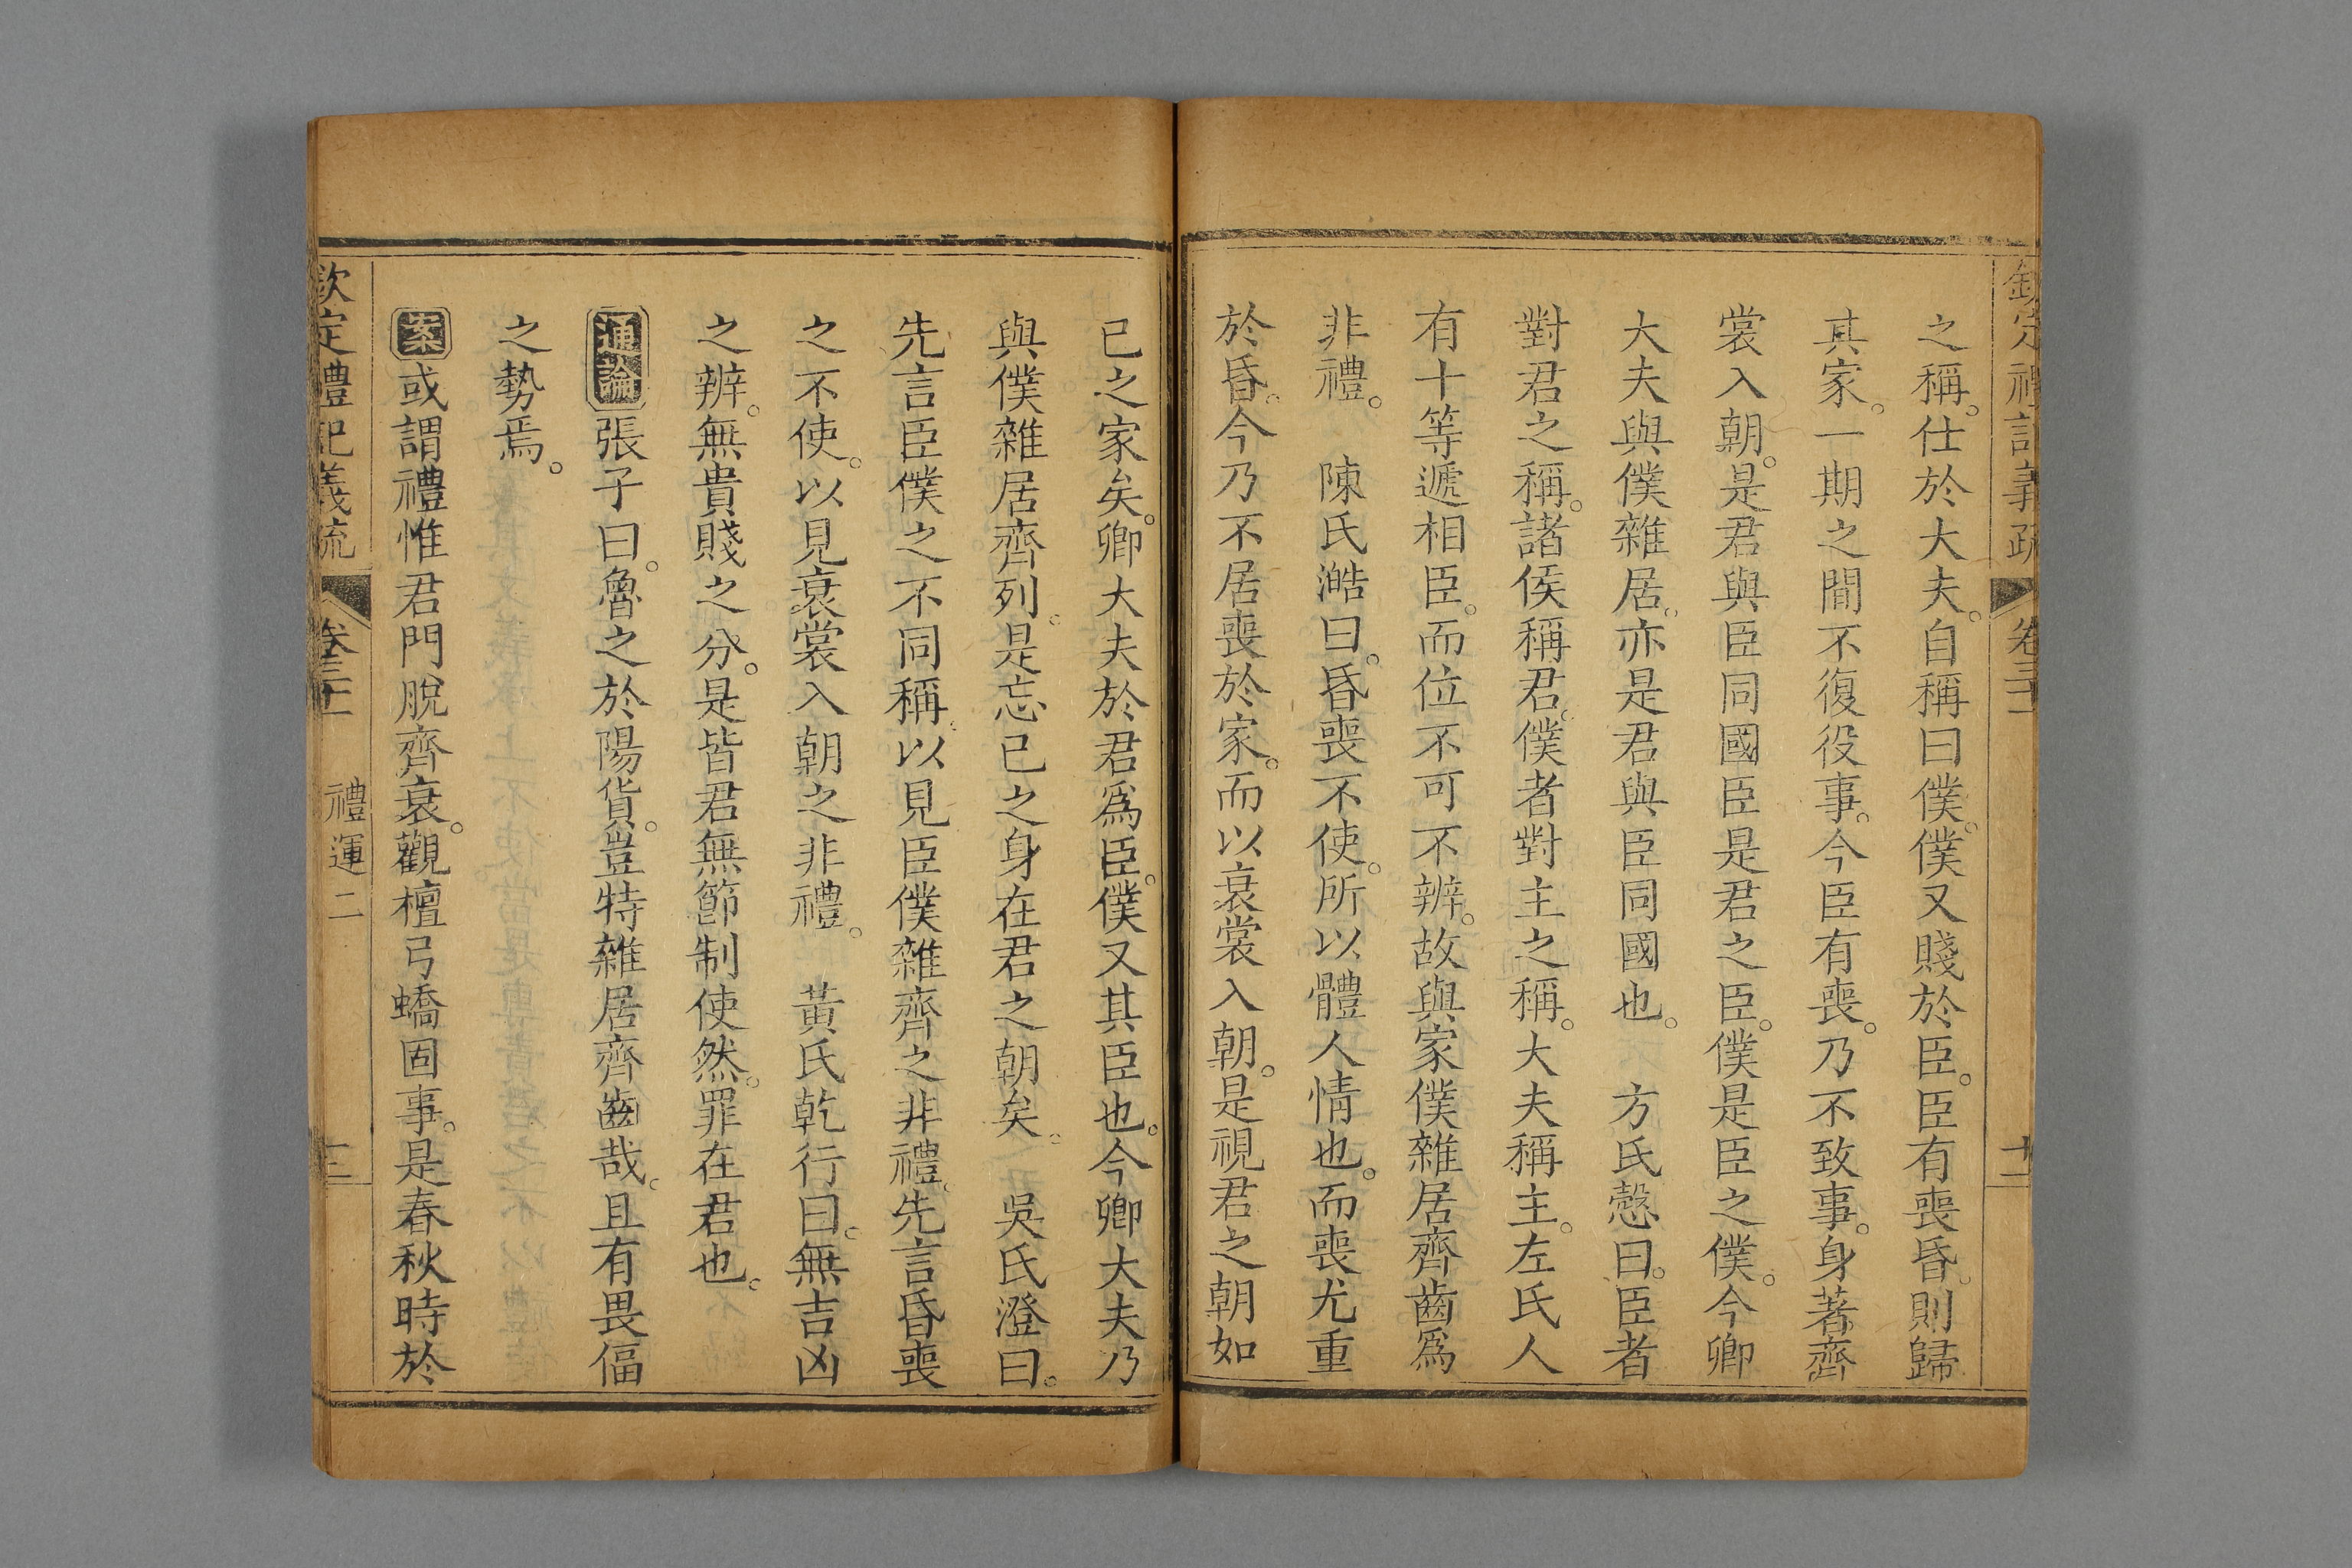 欽定禮記義疏 卷三十一 十二
之稱。仕於大夫。自稱曰僕。僕又賤於臣。臣有喪昏。則歸
其家。一期之間不復役事。今臣有喪。乃不致事。身著齊
裳入朝。是君與臣同國臣是君之臣。僕是臣之僕。今卿
大夫與僕雜居。亦是君與臣同國也。 方氏慤曰。臣者
對君之稱。諸侯稱君。僕者對主之稱。大夫稱主。左氏人
有十等遞相臣。而位不可不辨。故與家僕雜居齊齒爲
非禮。 陳氏澔曰。昏喪不使。所以體人情也。而喪尤重
於昏。今乃不居喪於家。而以衰裳入朝。是視君之朝如
己之家矣。卿大夫於君爲臣。僕又其臣也。今卿大夫乃
與僕雜居齊列。是忘己之身在君之朝矣。 吳氏澄曰。
先言臣僕之不同稱。以見臣僕雜齊之非禮。先言昏喪
之不使。以見衰裳入朝之非禮。 黃氏乾行曰。無吉凶
之辨。無貴賤之分。是皆君無節制使然。罪在君也。
通論張子曰。魯之於陽貨。豈特雜居齊齒哉。且有畏偪
之勢焉。
案或謂禮惟君門脫齊衰。觀檀弓蟜固事。是春秋時於
欽定禮記義疏 卷三十一 禮運二 十三